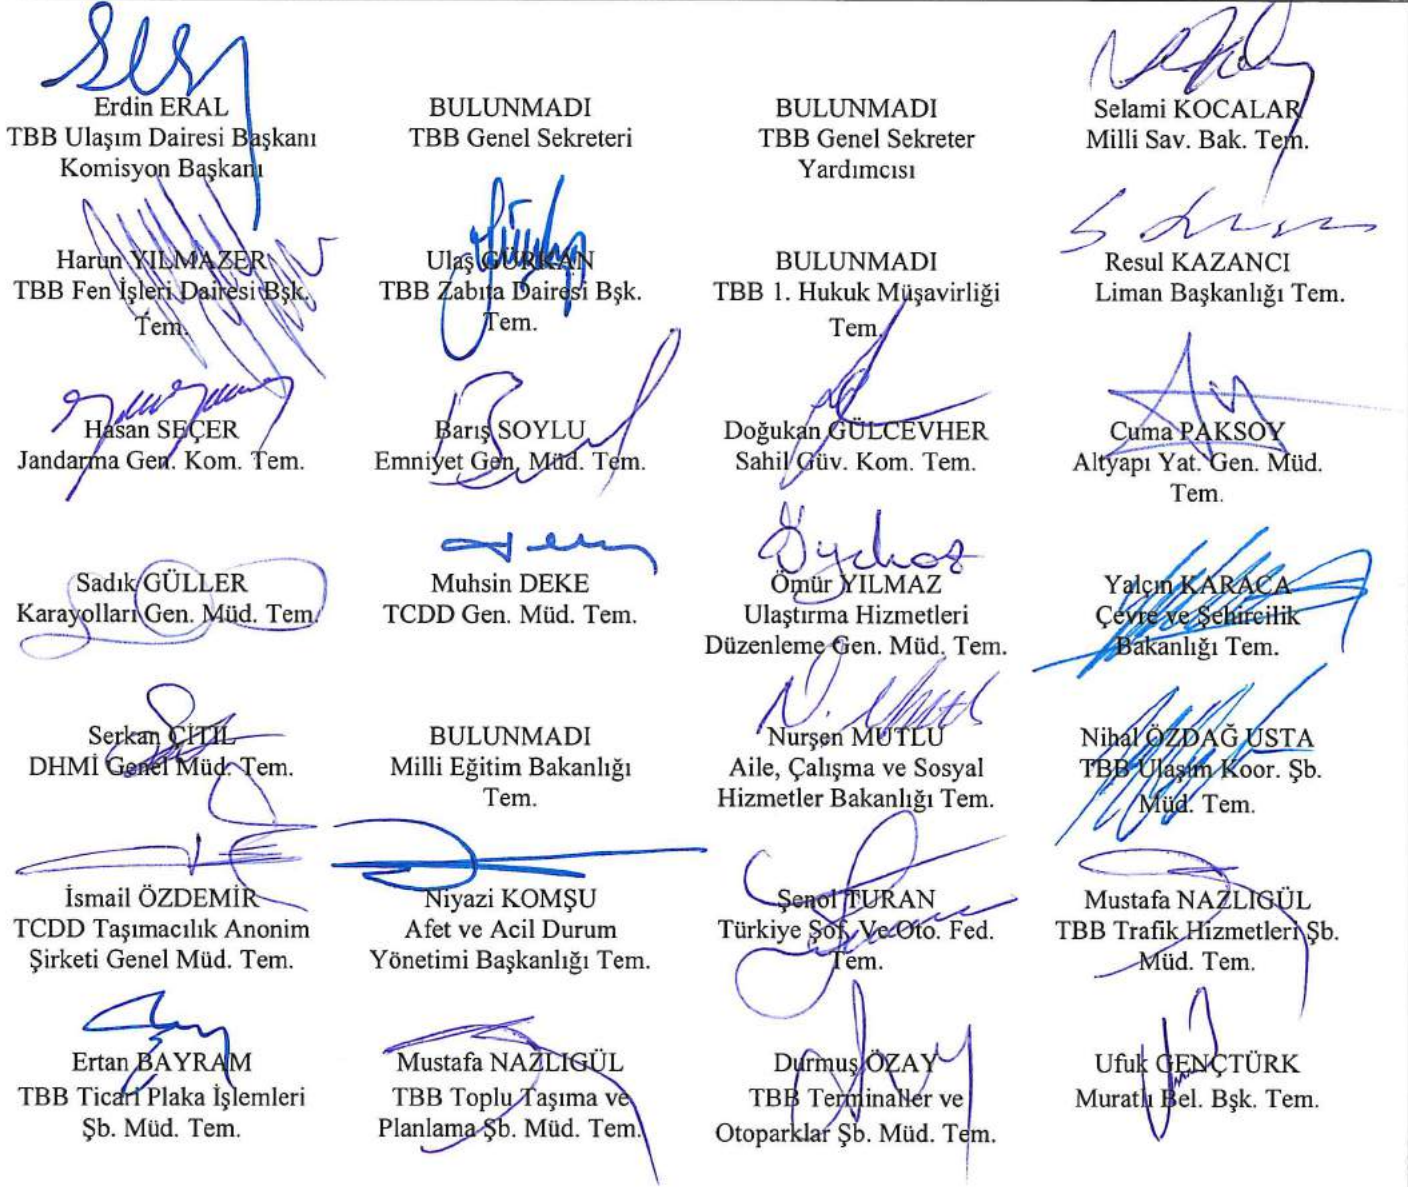 Erdin ERAL
TBB Ulaşım Dairesi Başkanı
Komisyon Başkanı
BULUNMADI
TBB Genel Sekreteri
BULUNMADI
TBB Genel Sekreter
Yardımcısı
Selami KOCALAR
Milli Sav. Bak. Tem.
Harun YILMAZER
TBB Fen İşleri Dairesi Bşk.
Tem.
Ulaş GÜRKAN
TBB Zabıta Dairesi Bşk.
Tem.
BULUNMADI
TBB 1. Hukuk Müşavirliği
Tem.
Resul KAZANCI
Liman Başkanlığı Tem.
Hasan SEÇER
Jandarma Gen. Kom. Tem.
Barış SOYLU
Emniyet Gen. Müd. Tem.
Doğukan GÜLCEVHER
Sahil Güv. Kom. Tem.
Cuma PAKSOY
Altyapı Yat. Gen. Müd.
Tem.
Sadık GÜLLER
Karayolları Gen. Müd. Tem.
Muhsin DEKE
TCDD Gen. Müd. Tem.
Ömür YILMAZ
Ulaştırma Hizmetleri
Düzenleme Gen. Müd. Tem.
Yalçın KARACA
Çevre ve Şehircilik
Bakanlığı Tem.
Serkan ÇİTİL
DHMİ Genel Müd. Tem.
BULUNMADI
Milli Eğitim Bakanlığı
Tem.
Nurşen MUTLU
Aile, Çalışma ve Sosyal
Hizmetler Bakanlığı Tem.
Nihal ÖZDAĞ USTA
TBB Ulaşım Koor. Şb.
Müd. Tem.
İsmail ÖZDEMİR
TCDD Taşımacılık Anonim
Şirketi Genel Müd. Tem.
Niyazi KOMŞU
Afet ve Acil Durum
Yönetimi Başkanlığı Tem.
Şenol TURAN
Türkiye Şof. Ve Oto. Fed.
Tem.
Mustafa NAZLIGÜL
TBB Trafik Hizmetleri Şb.
Müd. Tem.
Ertan BAYRAM
TBB Ticari Plaka İşlemleri
Şb. Müd. Tem.
Mustafa NAZLIGÜL
TBB Toplu Taşıma ve
Planlama Şb. Müd. Tem.
Durmuş ÖZAY
TBB Terminaller ve
Otoparklar Şb. Müd. Tem.
Ufuk GENÇTÜRK
Muratlı Bel. Bşk. Tem.